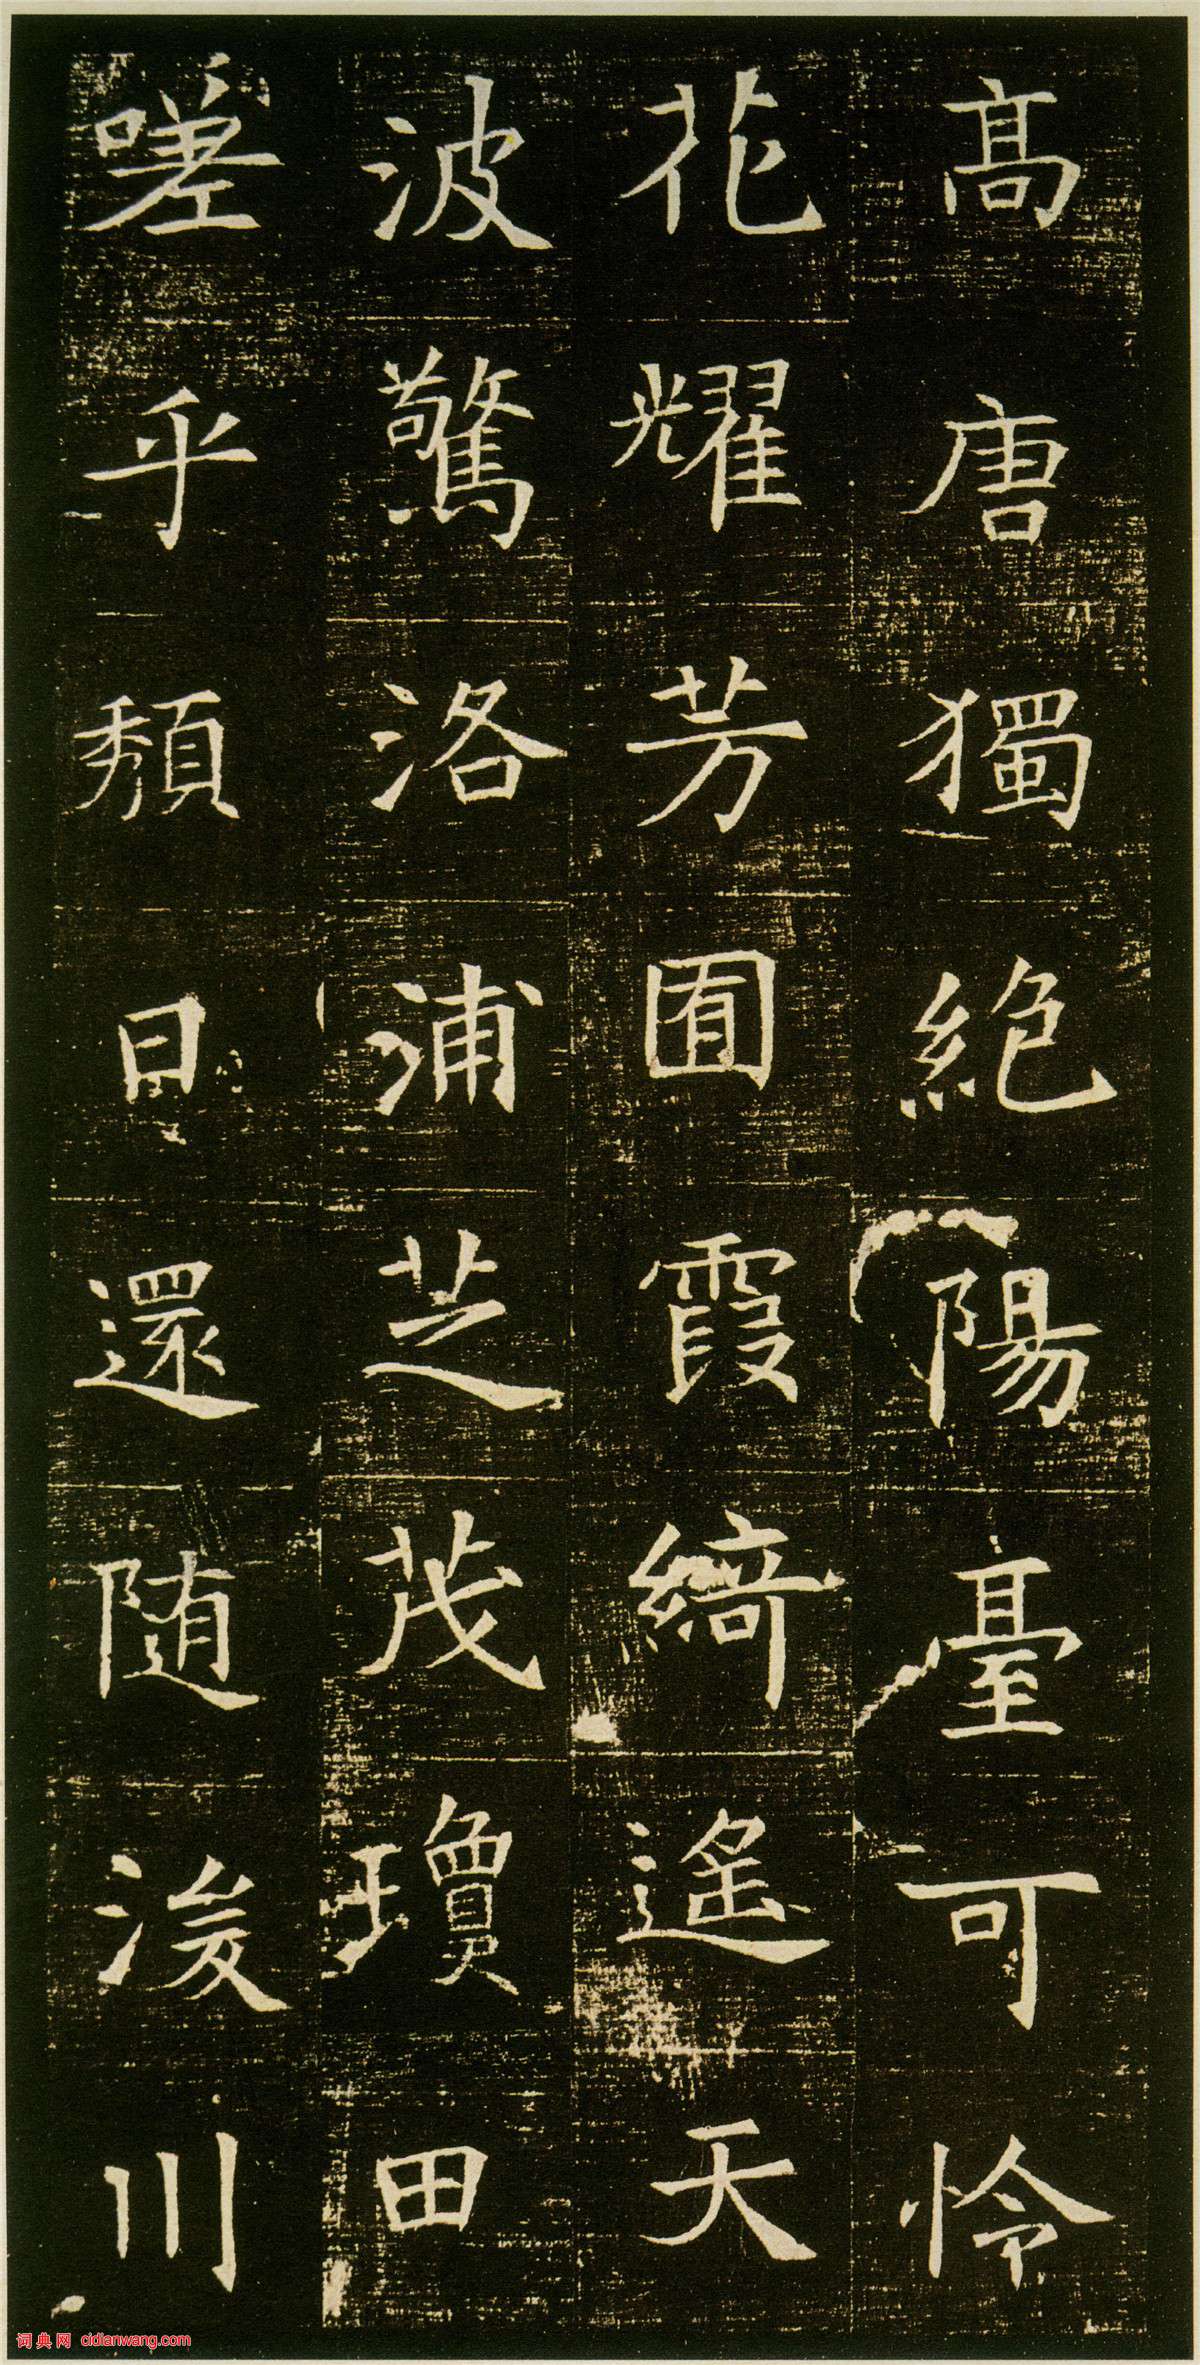 高唐獨絶陽臺可怜
花耀芳囿霞綺遥天
波驚洛浦芝茂瓊田
嗟乎頹日還随浚川
词典网 cidianwang.com